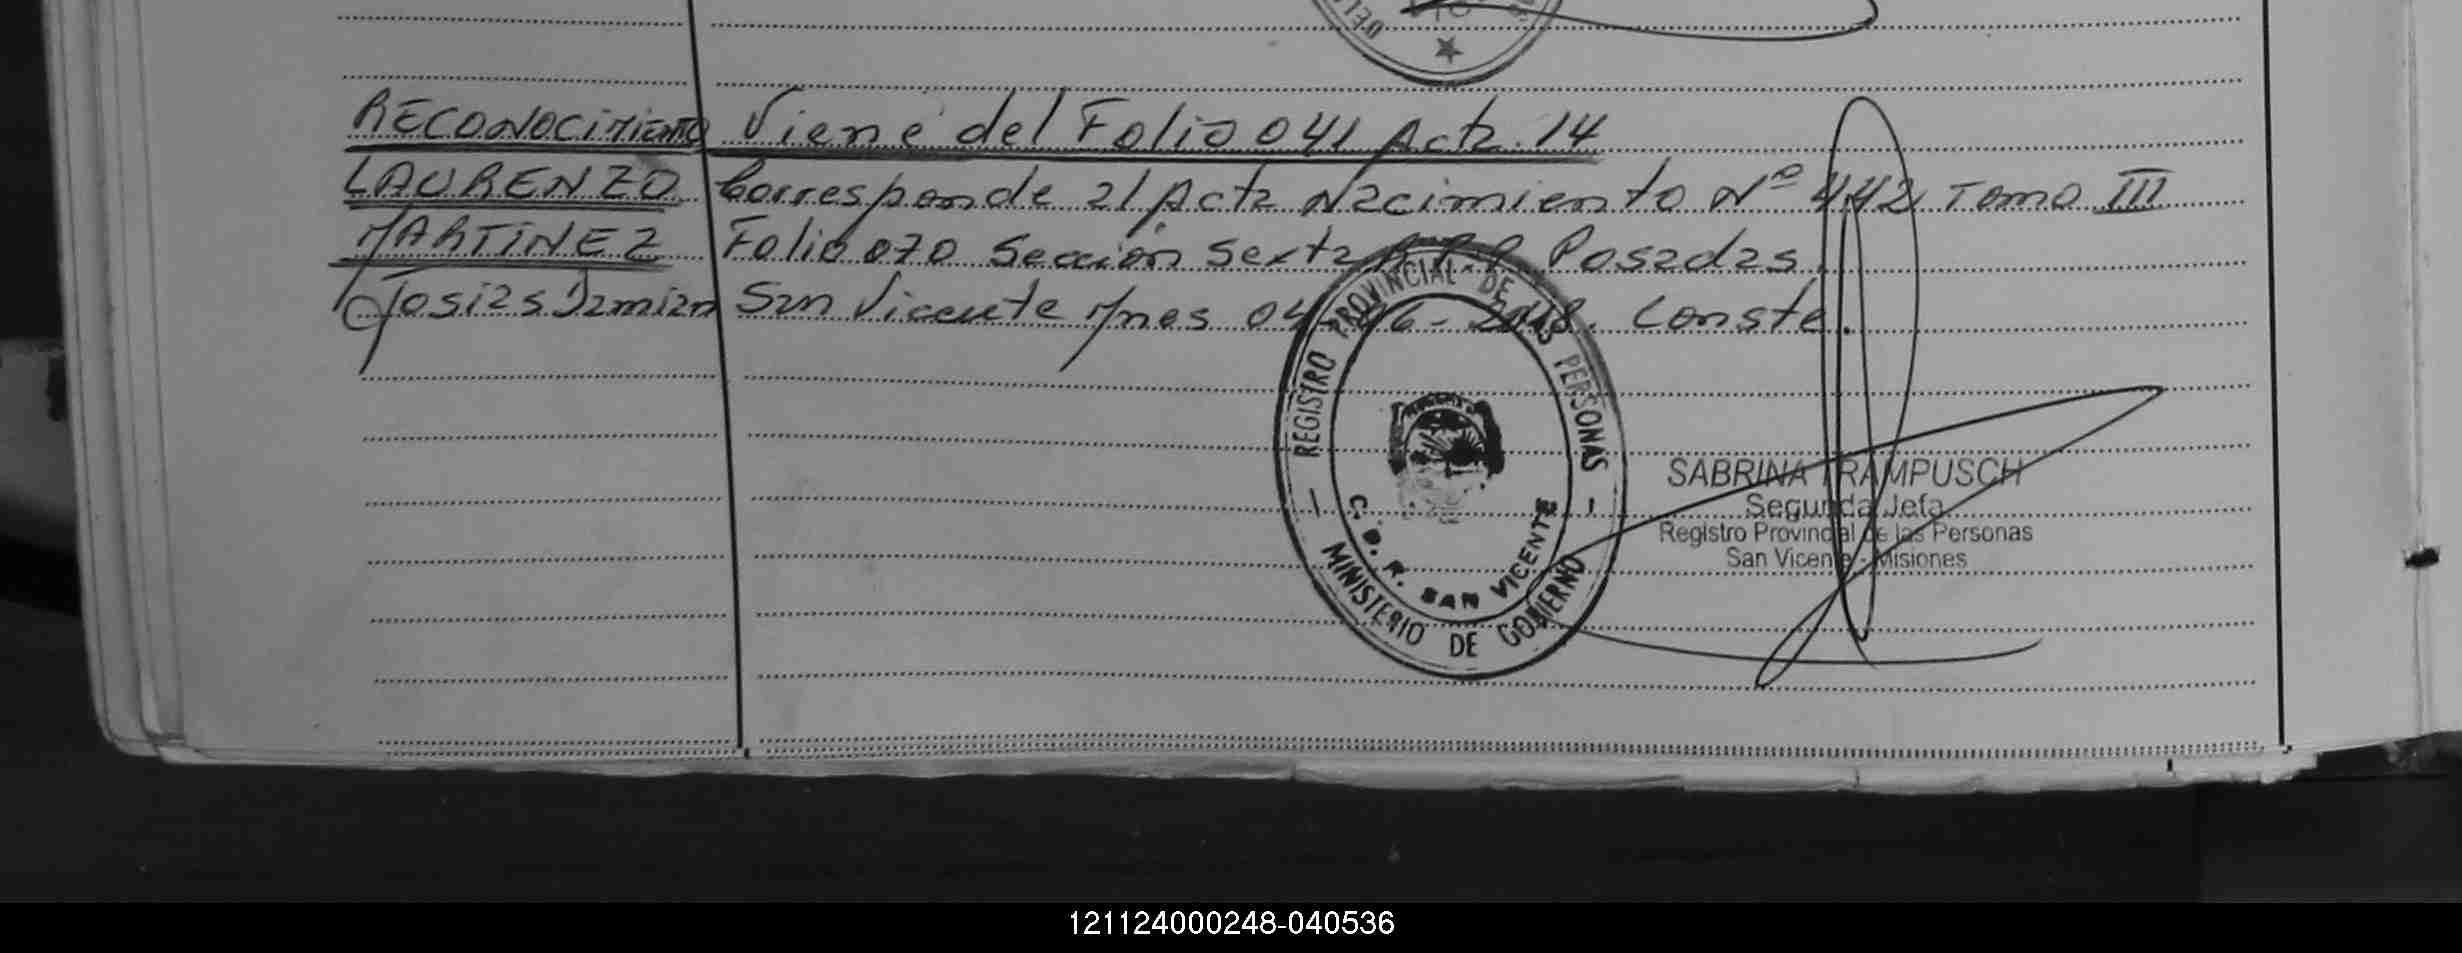 RECONOCIMIENTO Viene del Folio 041 Acta 14
LAURENZO Corresponde al Acta Nacimiento Nº 442 Tomo III
MARTINEZ Folio 070 Sección Sexta R.P.P. Posadas
Josias Damian San Vicente Mnes 04-06-2018. Conste.
REGISTRO PROVINCIAL DE LAS PERSONAS
MINISTERIO DE GOBIERNO
C.D.R. SAN VICENTE
SABRINA TRAMPUSCH
Segunda Jefa
Registro Provincial de las Personas
San Vicente - Misiones
121124000248-040536